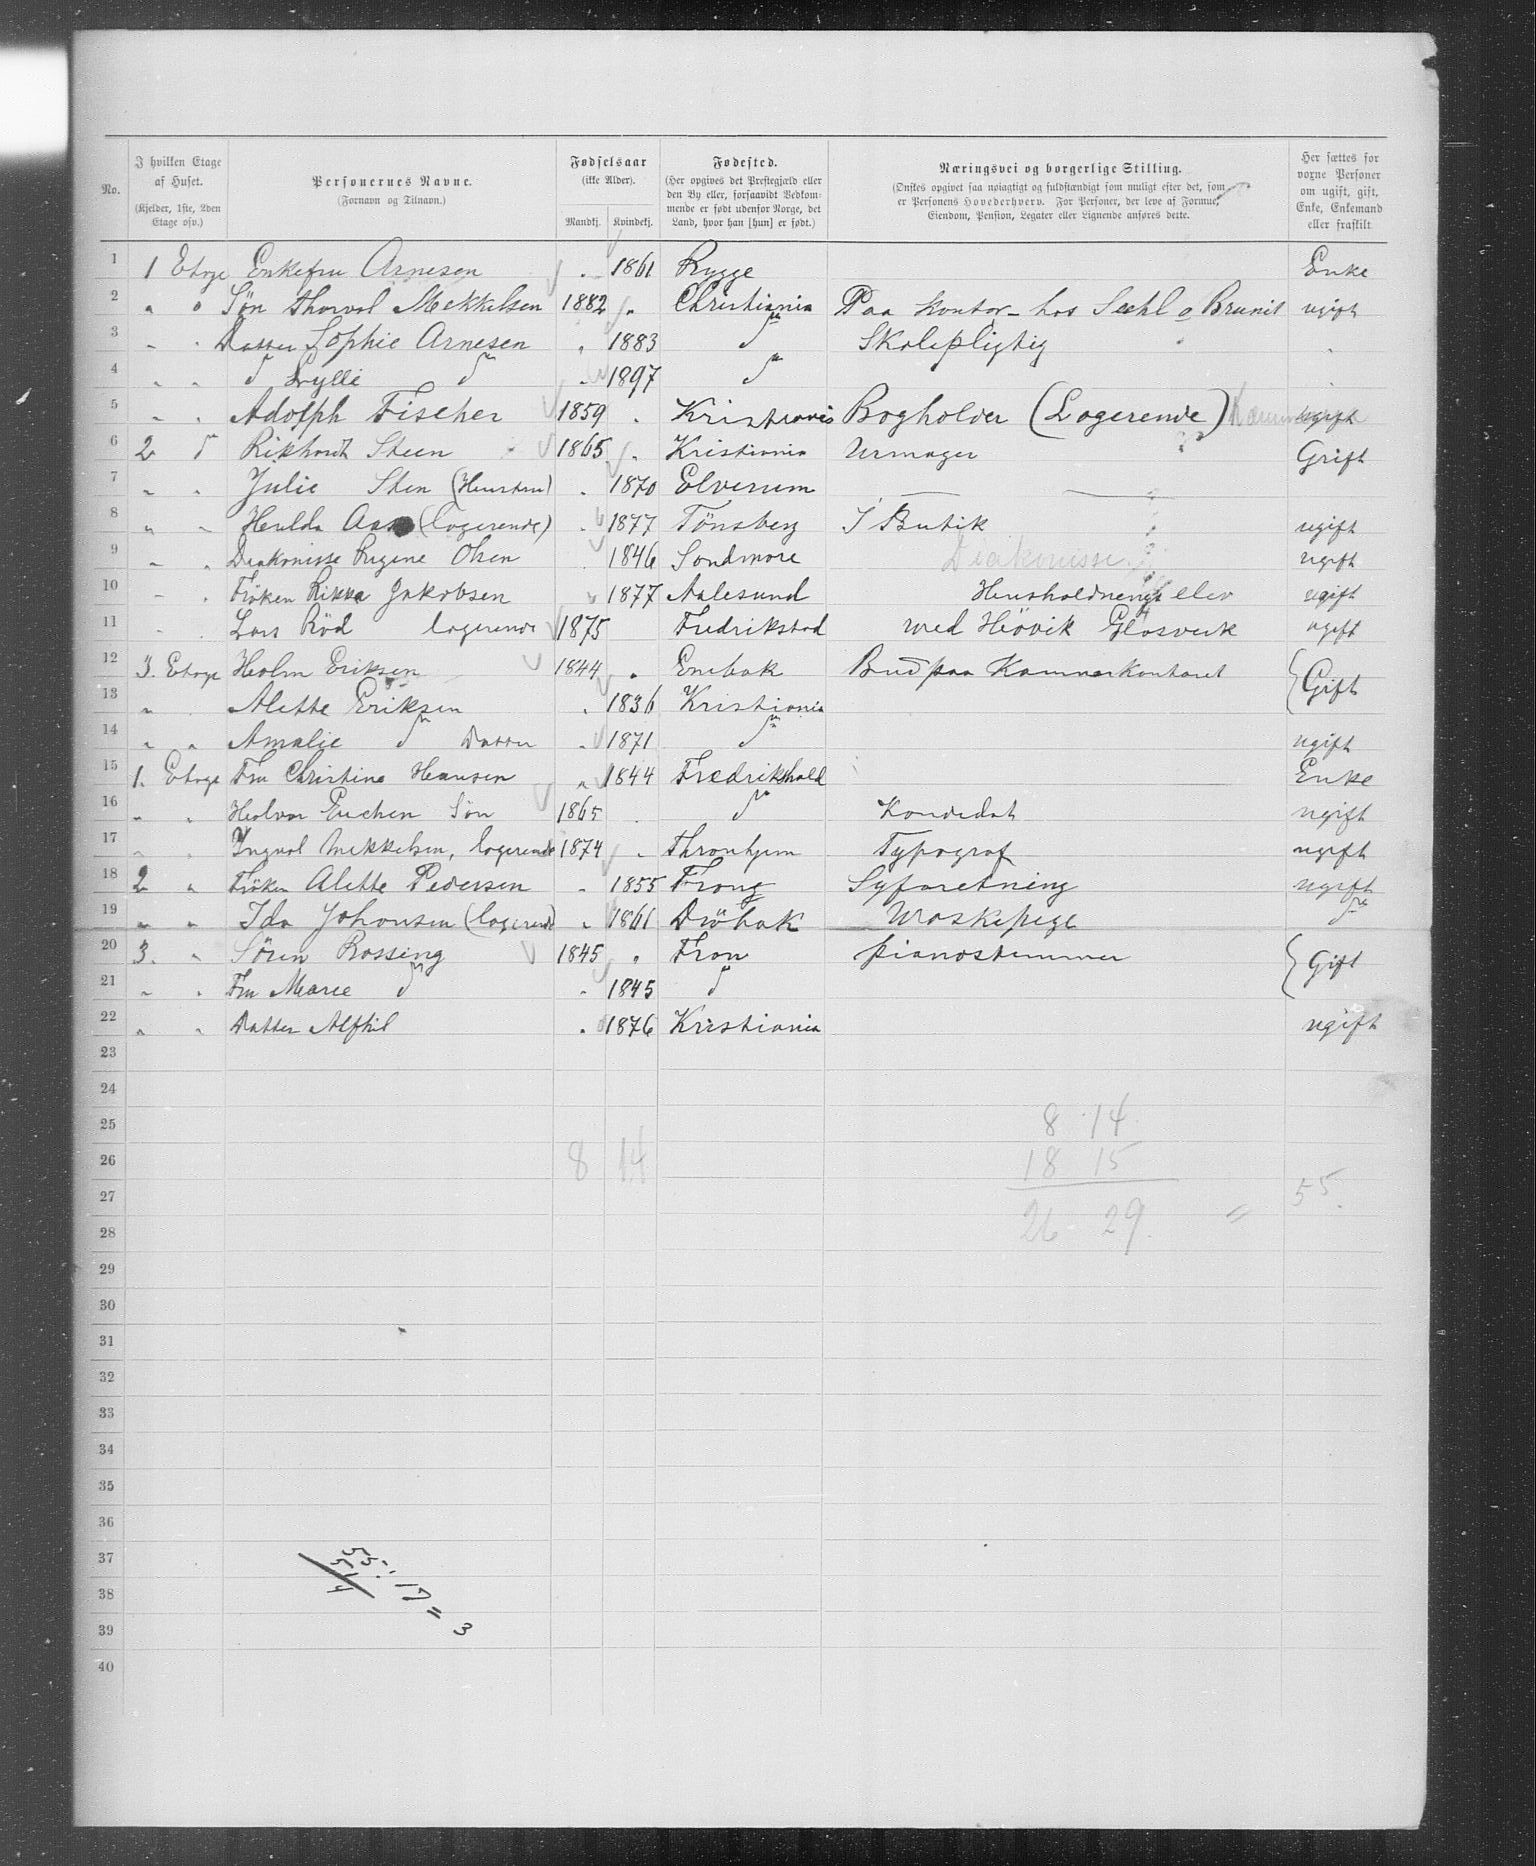 No. | I hvilken Etage af Huset. (Kjelder, 1ste, 2den Etage osv.) | Personernes Navne. (Fornavn og Tilnavn.) | Fødselsaar (ikke Alder). Mandkj. Kvindekj. | Fødested. (Her opgives det Prestegjæld eller den By eller, forsaavidt Vedkommende er født udenfor Norge, det Land, hvor han [hun] er født.) | Næringsvei og borgerlige Stilling. (Ønskes opgivet saa nøiagtigt og fuldstændigt som muligt efter det, som er Personens Hovederhverv. For Personer, der leve af Formue, Eiendom, Pension, Legater eller Lignende anføres dette.) | Her sættes for voxne Personer om ugift, gift, Enke, Enkemand eller fraskilt
1 1 Etage Enkefru Arnesen " 1861 Rygge Enke
2 " " Søn Thorval Mekkelsen 1882 " Christiania Paa Kontor hos & Brunil ugift
3 " " Datter Sophie Arnesen " 1883 do Skolepligtig "
4 " " do do " 1897 do "
5 " " Adolph Fischer 1859 " Kristiania Bogholder (Logerende) ugift
6 2 do Rikhardt Steen 1865 " Kristiania Urmager Gift
7 " " Julie Sten (Hustru) " 1870 Elverum
8 " " Hulda Aas (logerende) " 1877 Tönsberg I Butik ugift
9 " " Diakonisse Eugene Olsen 1846 Sondmøre Diakonisse ugift
10 " " Fröken Rikka Jakobsen " 1877 Aalesund Husholdnings elev ugift
11 " " Lars Röd logerende 1875 Fredrikstad med Hövik Glasverk ugift
12 3. Etage Holm Eriksen 1844 " Enebak Bud paa Kammerkontoret Gift
13 " Alette Eriksen " 1836 Kristiania
14 " " Amalie do Datter " 1871 do ugift
15 1. Etage Fru Christine Hansen " 1844 Fredrikshald Enke
16 " " Halvor Søn 1865 " do Kandidat ugift
17 " " Ingval Mekkelsen, logerende 1874 " Thronhjem Typograf ugift
18 2 " Fröken Alette Pedersen " 1855 Frong Syforetning ugift
19 " " Ida Johansen (logerende " 1861 Dröbak Waskepige do
20 3. " Sören Rossing 1845 " Fron Pianostemmer Gift
21 " " Fru Marie do " 1845 do
22 " " Datter Alfhil " 1876 Kristiania ugift
23
24
25 8 14
26 8 14 18 15
27 55.
28 26 29 =
29
30
31
32
33
34
35
36
37 55 : 17 = 3
38 51
39 4
40